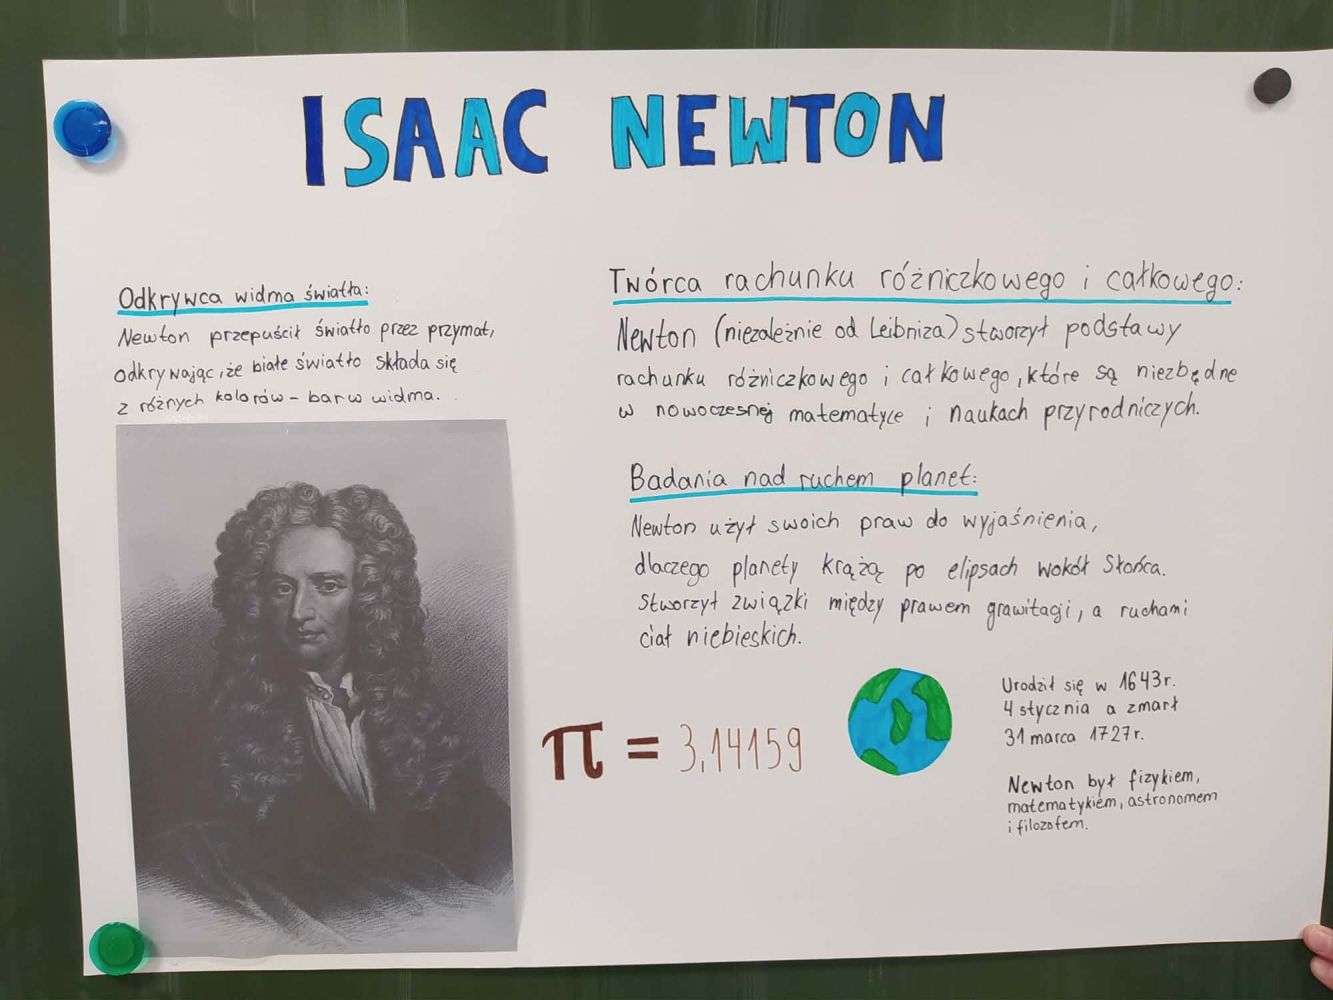 ISAAC NEWTON
Odkrywca widma światła:
Newton przepuścił światło przez przymat,
odkrywając, że białe światło składa się
z różnych kolorów – barw widma.
Twórca rachunku różniczkowego i całkowego:
Newton (niezależnie od Leibniza) stworzył podstawy
rachunku różniczkowego i całkowego, które są niezbędne
w nowoczesnej matematyce i naukach przyrodniczych.
Badania nad ruchem planet:
Newton użył swoich praw do wyjaśnienia,
dlaczego planety krążą po elipsach wokół Słońca.
Stworzył związki między prawem grawitacji, a ruchami
ciał niebieskich.
π = 3,14159
Urodził się w 1643r.
4 stycznia a zmarł
31 marca 1727r.
Newton był fizykiem,
matematykiem, astronomem
i filozofem.